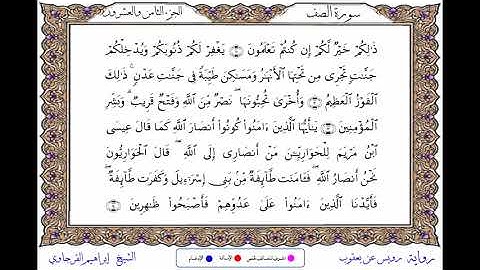 سورة الصف
الجزء الثامن والعشرون
ذَٰلِكُمْ خَيْرٌ لَّكُمْ إِن كُنتُمْ تَعْلَمُونَ ۝ يَغْفِرْ لَكُمْ ذُنُوبَكُمْ وَيُدْخِلْكُمْ
جَنَّٰتٍ تَجْرِي مِن تَحْتِهَا ٱلْأَنْهَٰرُ وَمَسَٰكِنَ طَيِّبَةً فِي جَنَّٰتِ عَدْنٍ ۚ ذَٰلِكَ
ٱلْفَوْزُ ٱلْعَظِيمُ ۝ وَأُخْرَىٰ تُحِبُّونَهَا ۖ نَصْرٌ مِّنَ ٱللَّهِ وَفَتْحٌ قَرِيبٌ ۗ وَبَشِّرِ
ٱلْمُؤْمِنِينَ ۝ يَٰٓأَيُّهَا ٱلَّذِينَ ءَامَنُوا۟ كُونُوٓا۟ أَنصَارَ ٱللَّهِ كَمَا قَالَ عِيسَى
ٱبْنُ مَرْيَمَ لِلْحَوَارِيِّـۧنَ مَنْ أَنصَارِيٓ إِلَى ٱللَّهِ ۖ قَالَ ٱلْحَوَارِيُّونَ
نَحْنُ أَنصَارُ ٱللَّهِ ۖ فَـَٔامَنَت طَّآئِفَةٌ مِّنۢ بَنِيٓ إِسْرَٰٓءِيلَ وَكَفَرَت طَّآئِفَةٌ ۖ
فَأَيَّدْنَا ٱلَّذِينَ ءَامَنُوا۟ عَلَىٰ عَدُوِّهِمْ فَأَصْبَحُوا۟ ظَٰهِرِينَ ۝
رواية رويس عن يعقوب
الإمالة
الإدغام
الشيخ إبراهيم الفرجاوي